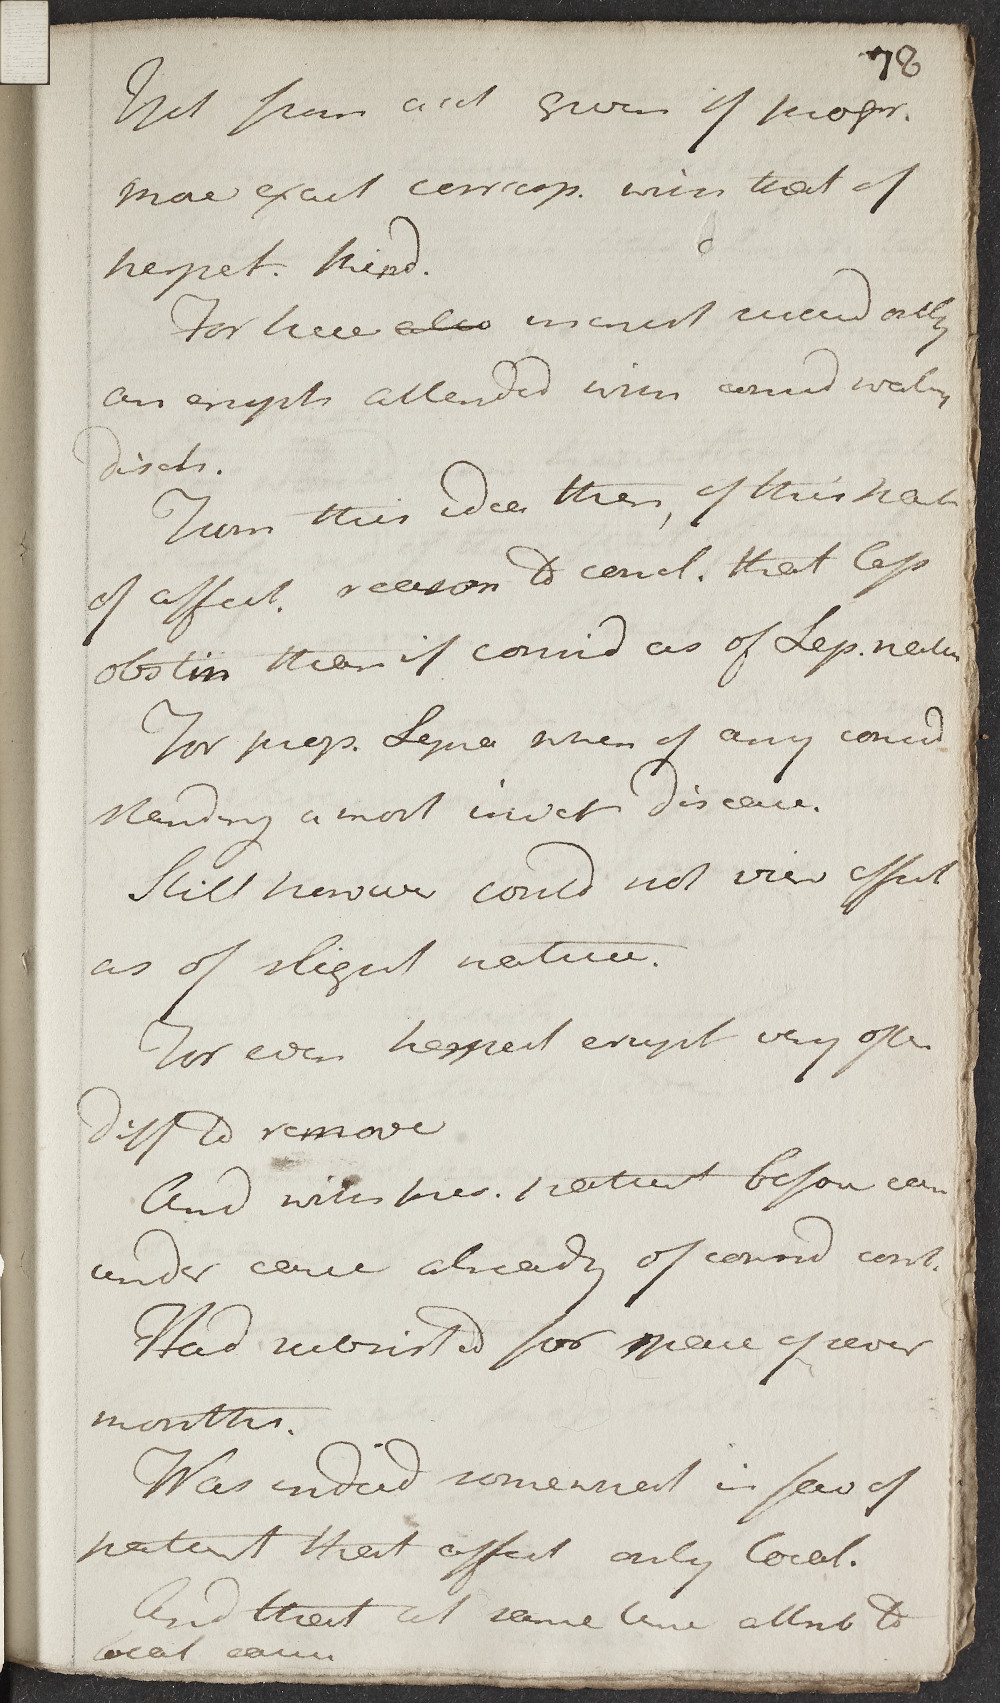 78
Yet from acct given of progr.
more exact corresp. with that of
herpet. kind.
For here also in crust succeed only
an erupt attended with consid watery
disch.
From this idea then, of this nat
of affect. reason to concl. that less
obstin than if consid as of Lep. natu
For prop. Lepra when of any consid
standing a most invet disease.
Still however could not view affect
as of slight nature.
For even herpet erupt very often
diff to remove
And with pres. patient before cam
under care already of consid cont.
Had subsisted for space of sever
months.
Was indeed somewhat in fav of
patient that affect only local.
And that at same time attrib to
local cause